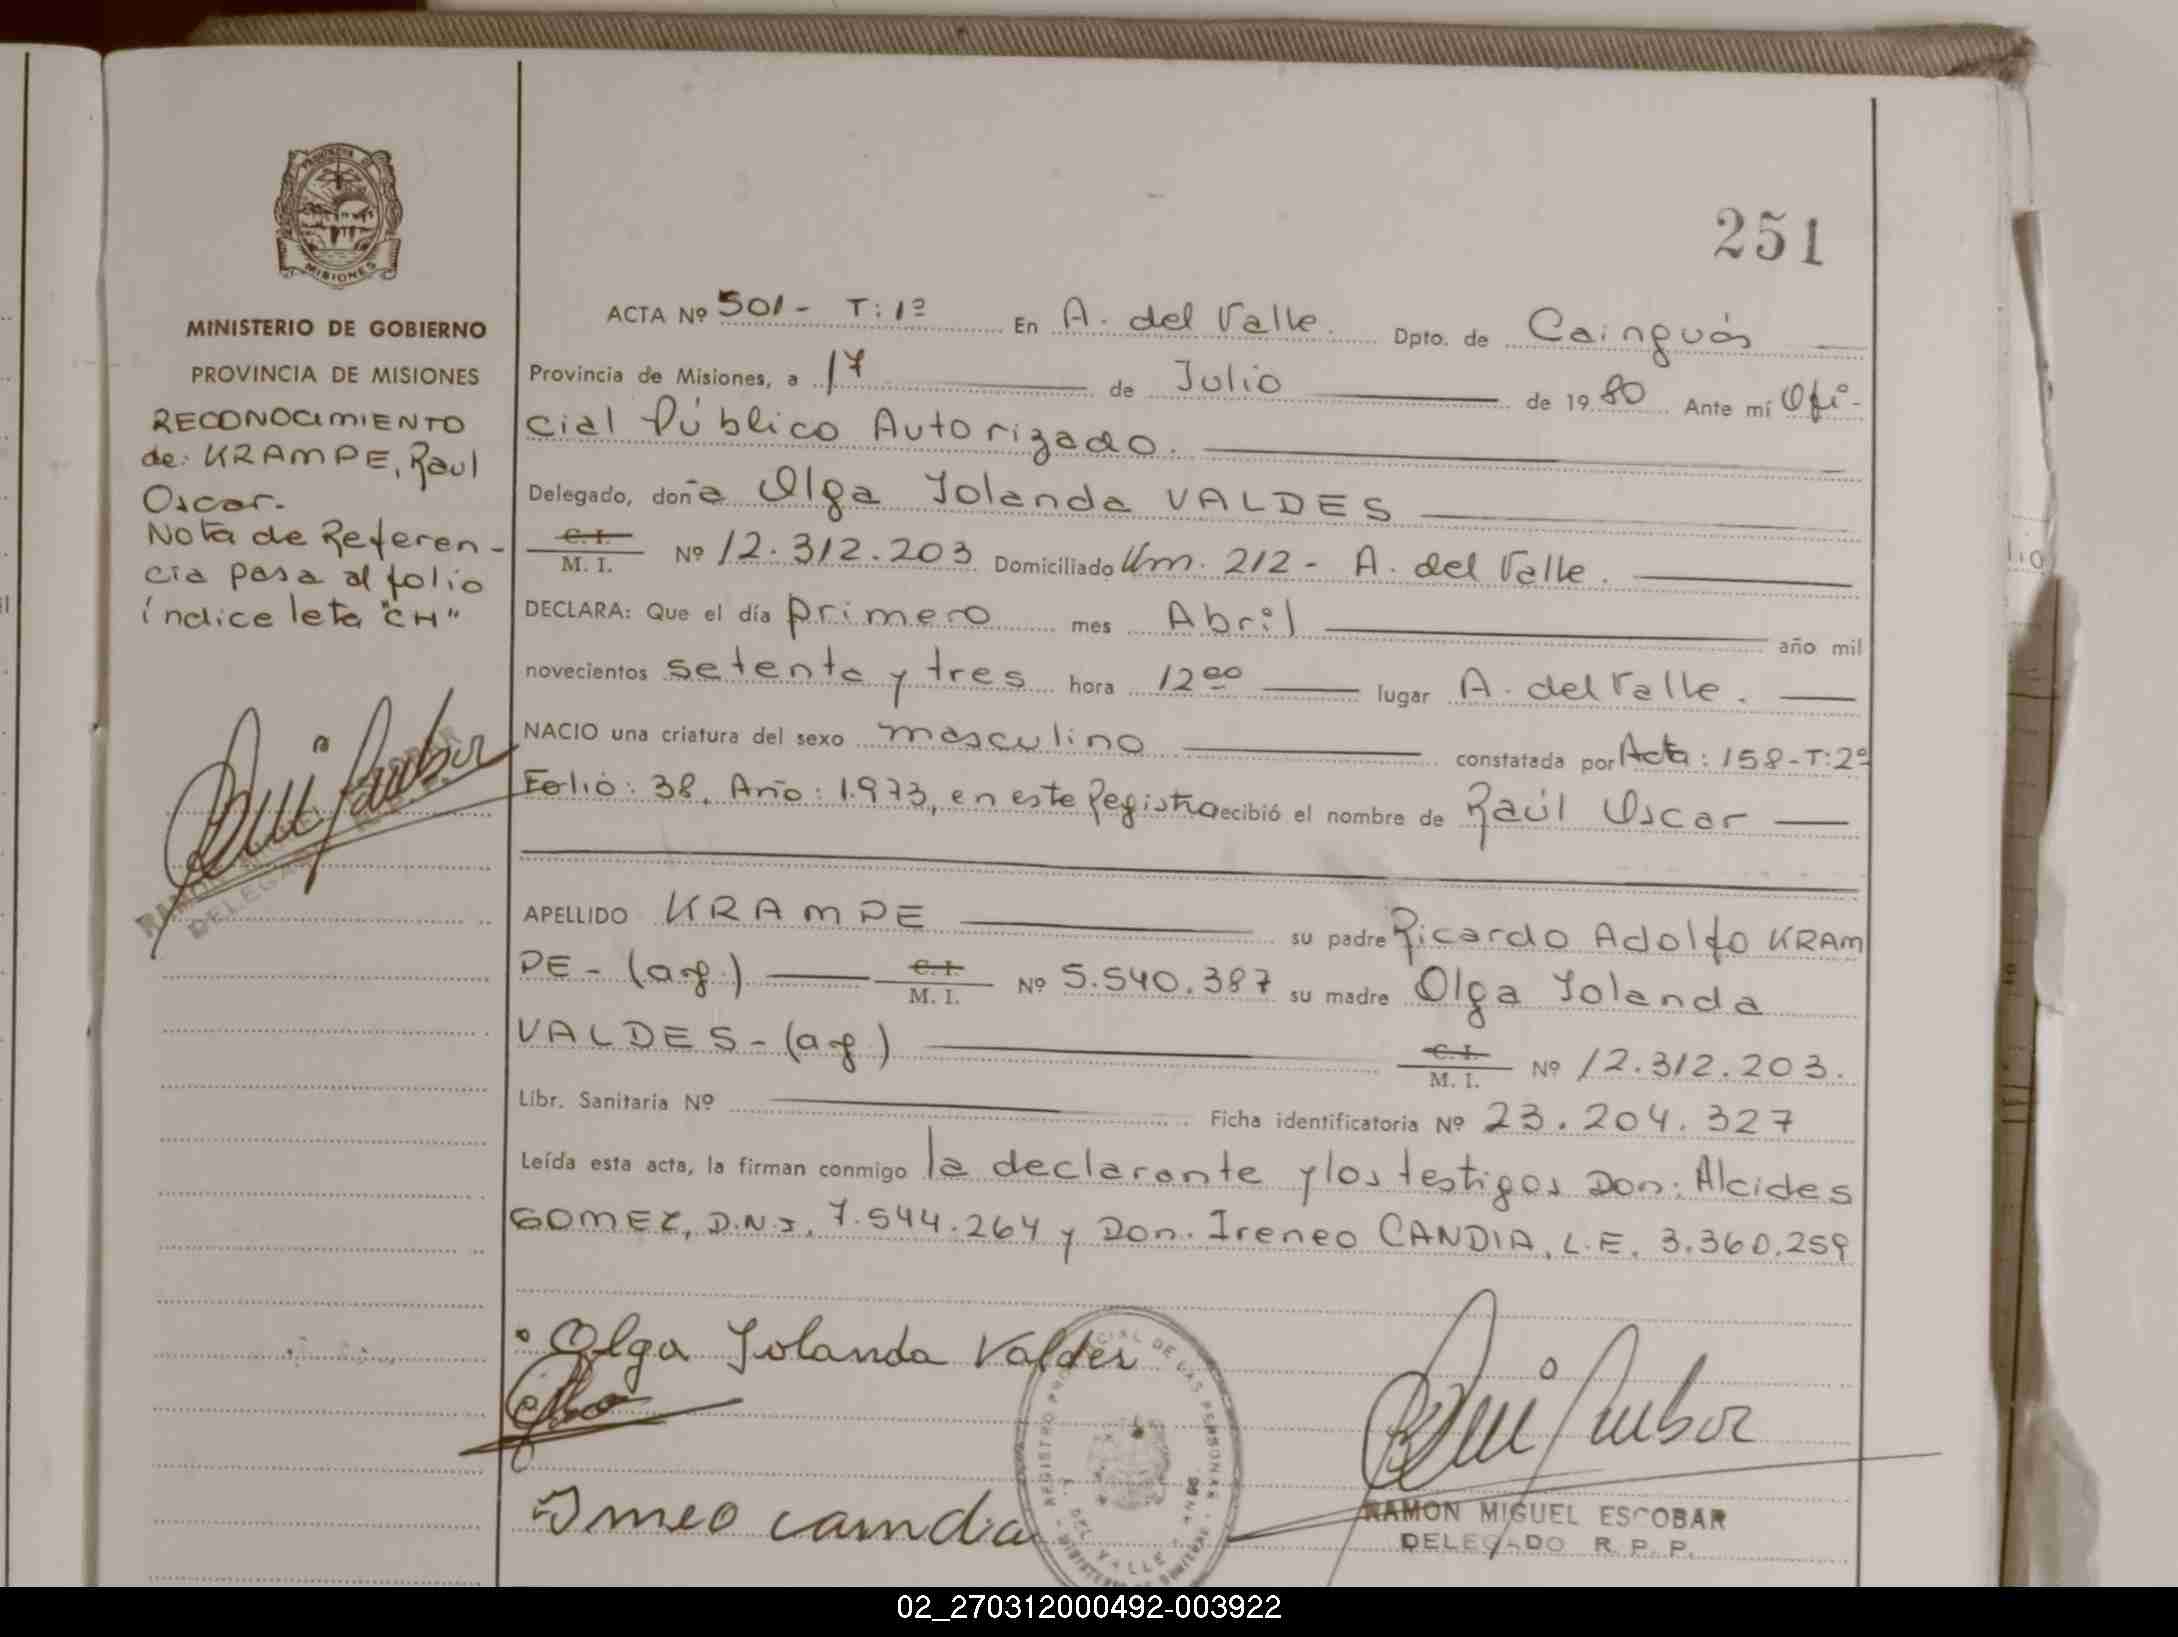 251
PROVINCIA DE
MISIONES
MINISTERIO DE GOBIERNO
PROVINCIA DE MISIONES
RECONOCIMIENTO
de: KRAMPE, Raul
Oscar.-
Nota de Referen-
cia pasa al folio
índice leta "CH"
RAMON
ESCOBAR
DELEGA
ACTA Nº 501- T: 1º En A. del Valle. Dpto. de Cainguás
Provincia de Misiones, a 17 de Julio de 1980 Ante mí Ofi-
cial Público Autorizado.
Delegado, doña Olga Iolanda VALDES
C. I.
M. I. Nº 12.312.203 Domiciliado Km. 212- A. del Valle.
DECLARA: Que el día primero mes Abril año mil
novecientos setenta y tres hora 12 00 lugar A. del Valle.
NACIO una criatura del sexo masculino constatada por Acta: 158-T:2º
Folio: 38. Año: 1.973, en este Registro recibió el nombre de Raúl Oscar
APELLIDO KRAMPE su padre Ricardo Adolfo KRAM
PE- (arg.) C. I. M. I. Nº 5.540.387 su madre Olga Iolanda
VALDES- (arg.) C. I. M. I. Nº 12.312.203.
Libr. Sanitaria Nº Ficha identificatoria Nº 23.204.327
Leída esta acta, la firman conmigo la declarante y los testigos Don: Alcides
GOMEZ, D.N.I. 7.544.264 y Don. Ireneo CANDIA, L.E. 3.360.259
Olga Iolanda Valdes
REGISTRO PROVINCIAL DE LAS PERSONAS
DEL VALLE
Irneo camdia
RAMON MIGUEL ESCOBAR
DELEGADO R. P. P.
02_270312000492-003922